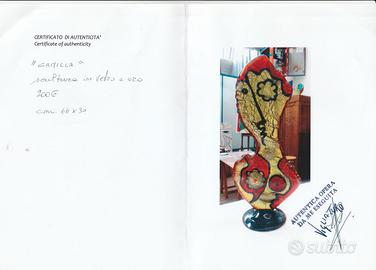 CERTIFICATO DI AUTENTICITA'
Certificate of authenticity
"CAMILLA"
scultura in vetro e oro
2006
cm. 66 x 30
AUTENTICA OPERA
DA ME ESEGUITA
subito